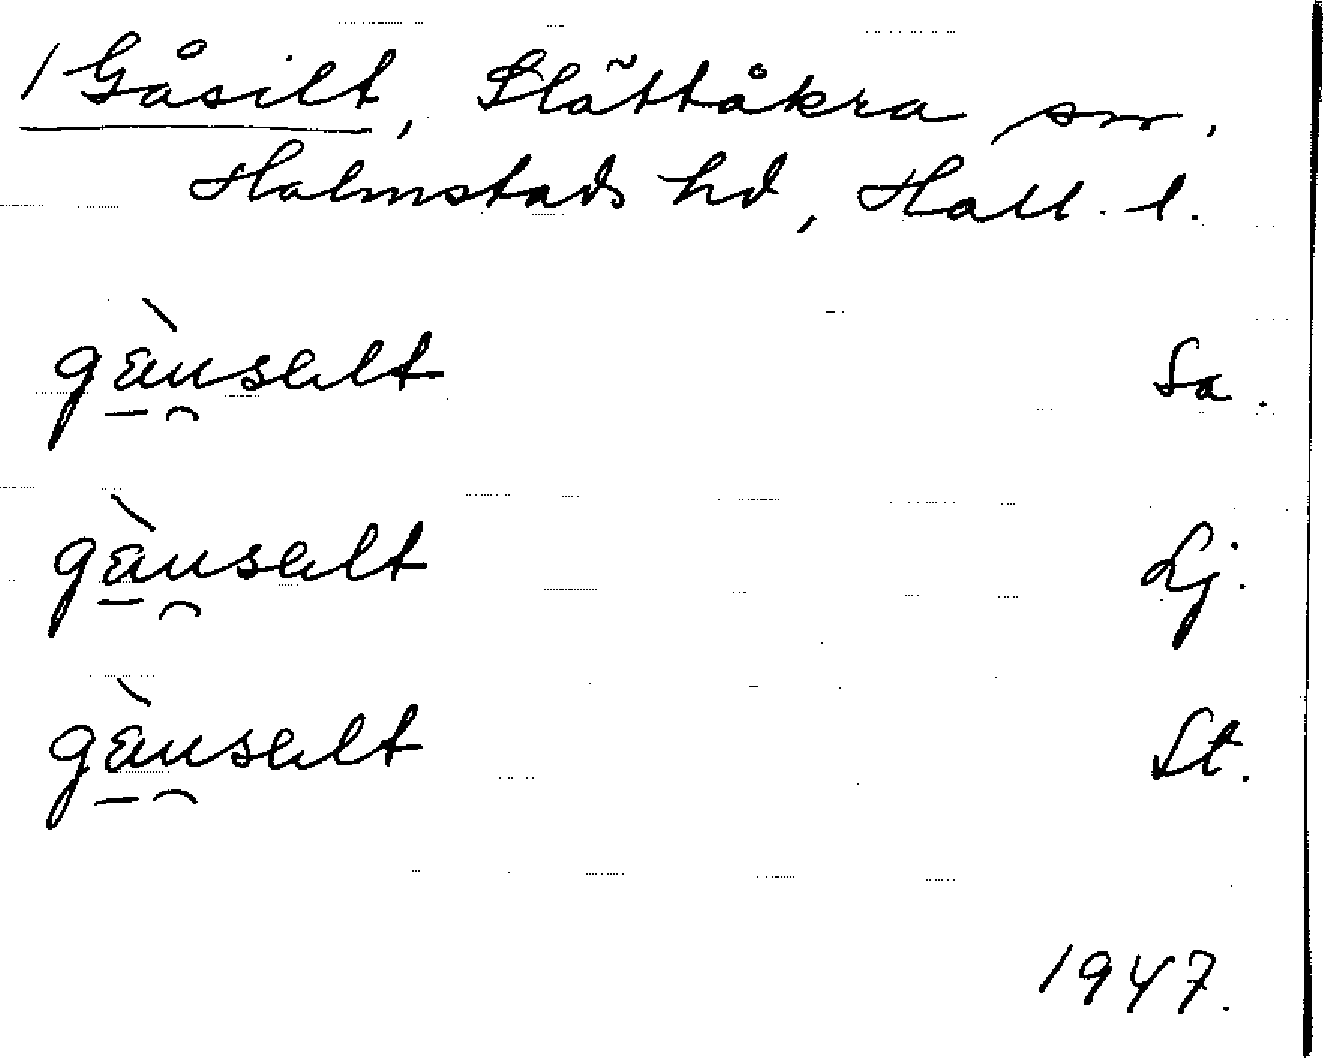 / Gåsilt, Slättåkra sn.
Halmstads hd, Hall. l.
gàu̯sɑlt Sa.
gàu̯sɑlt Lj.
gàu̯sɑlt St.
1947.